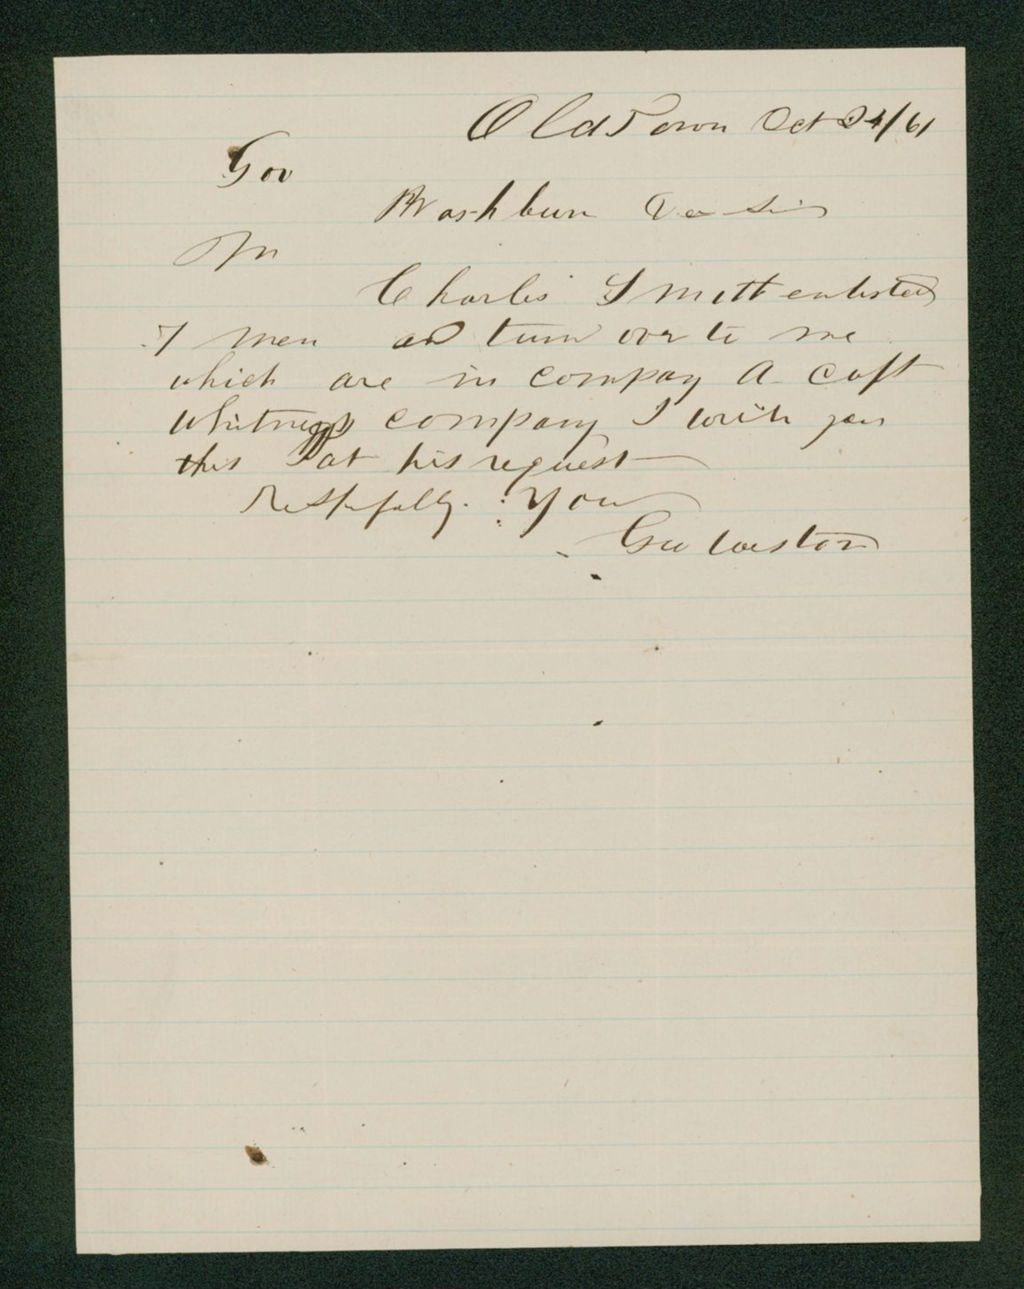 Old Town Oct 24/61
Gov
Washburn Dear Sir
Mr
Charles Smith enlisted
7 men and turn over to me
which are in compay A Capt
Whitneys company I write you
this at his request
Respfully Your
Geo Weston